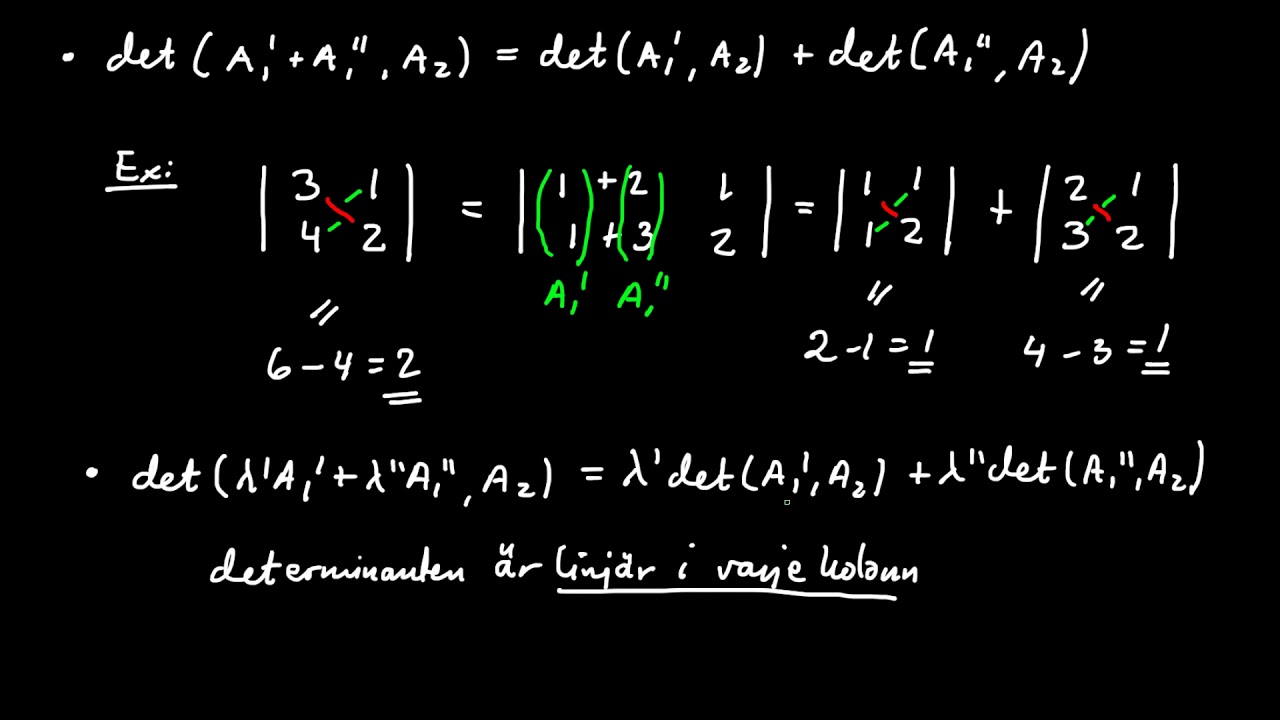 • det(A₁' + A₁'', A₂) = det(A₁', A₂) + det(A₁'', A₂)
Ex: | 3 1 | = | 1 + 2 1 | = | 1 1 | + | 2 1 |
| 4 2 | | 1 + 3 2 | | 1 2 | | 3 2 |
A₁' A₁''
= = =
6 - 4 = 2 2 - 1 = 1 4 - 3 = 1
• det(λ'A₁' + λ''A₁'', A₂) = λ'det(A₁', A₂) + λ''det(A₁'', A₂)
determinanten är linjär i varje kolonn